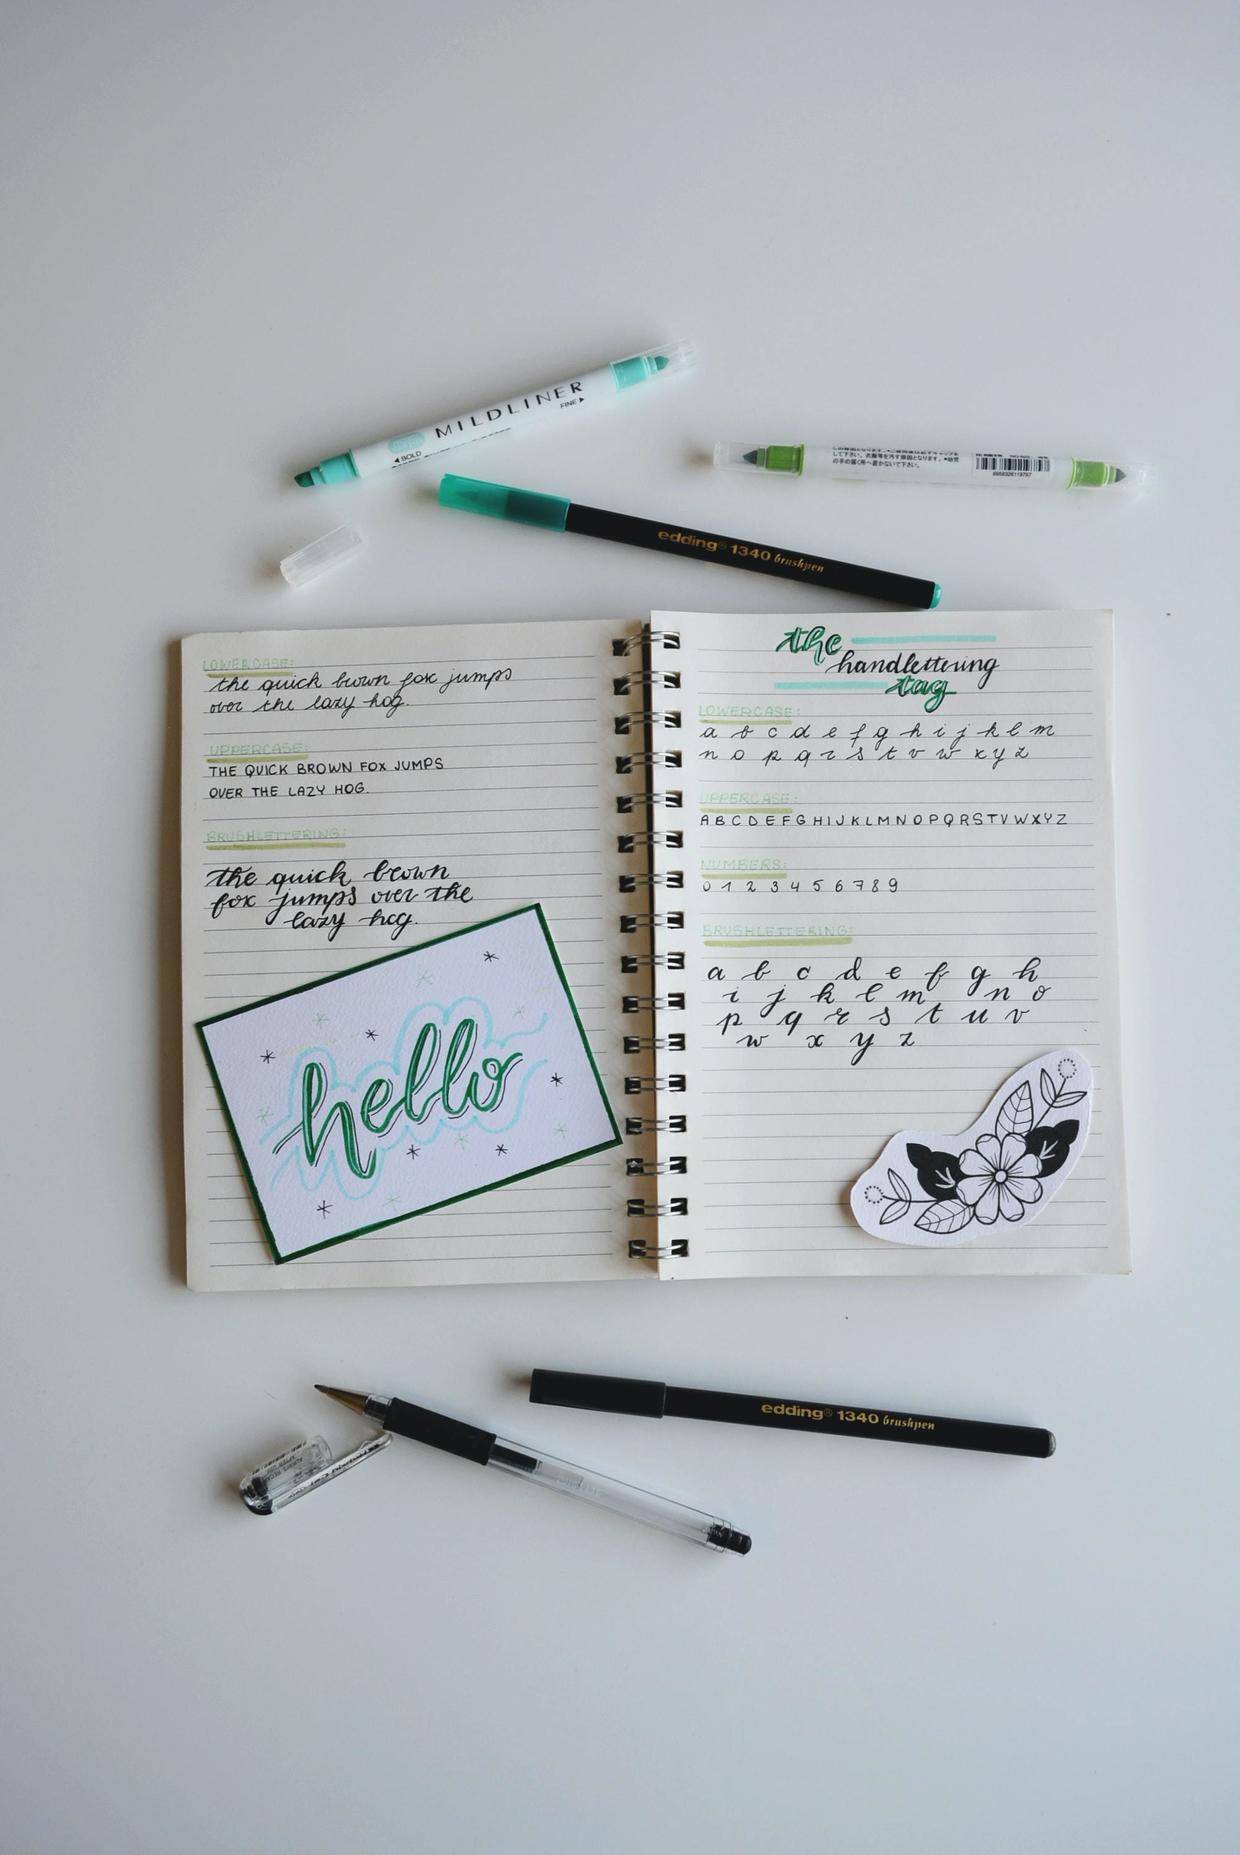 MILDLINER
FINE
BOLD
して下さい。お服等を汚す原因となります。●幼児
の手の届く所へ置かないで下さい。
edding® 1340 brushpen
LOWERCASE:
the quick brown fox jumps
over the lazy hog.
UPPERCASE:
THE QUICK BROWN FOX JUMPS
OVER THE LAZY HOG.
BRUSHLETTERING:
the quick brown
fox jumps over the
lazy hog.
hello
the
handlettering
tag
LOWERCASE:
a b c d e f g h i j k l m
n o p q r s t v w x y z
UPPERCASE:
A B C D E F G H I J K L M N O P Q R S T V W X Y Z
NUMBERS:
0 1 2 3 4 5 6 7 8 9
BRUSHLETTERING:
a b c d e f g h
i j k l m n o
p q r s t u v
w x y z
edding® 1340 brushpen